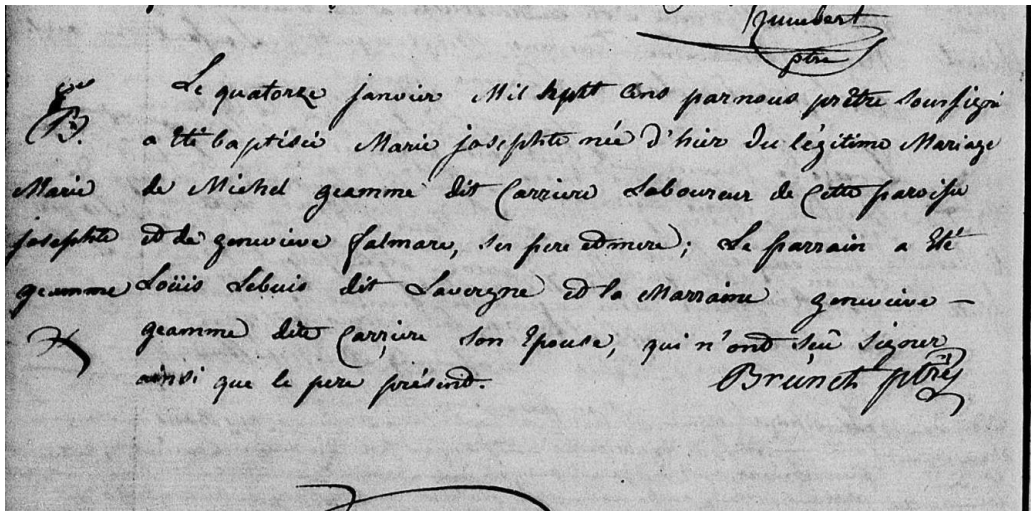 Humbert
ptre
B.
Marie
josephte
geamme
Le quatorze janvier Mil sept Cens par nous prêtre soussigné
a été baptisée Marie josephte née d'hier du légitime Mariage
de Michel geamme dit Carriere Laboureur de Cette paroisse
et de genevieve Jalmare, ses pere et mere; Le parrain a été
Loüis Lebuis dit Lavergne et la Marraine genevieve –
geamme dite Carriere son Epouse, qui n'ont sçû signer
ainsi que le pere présent.
Brunet ptre